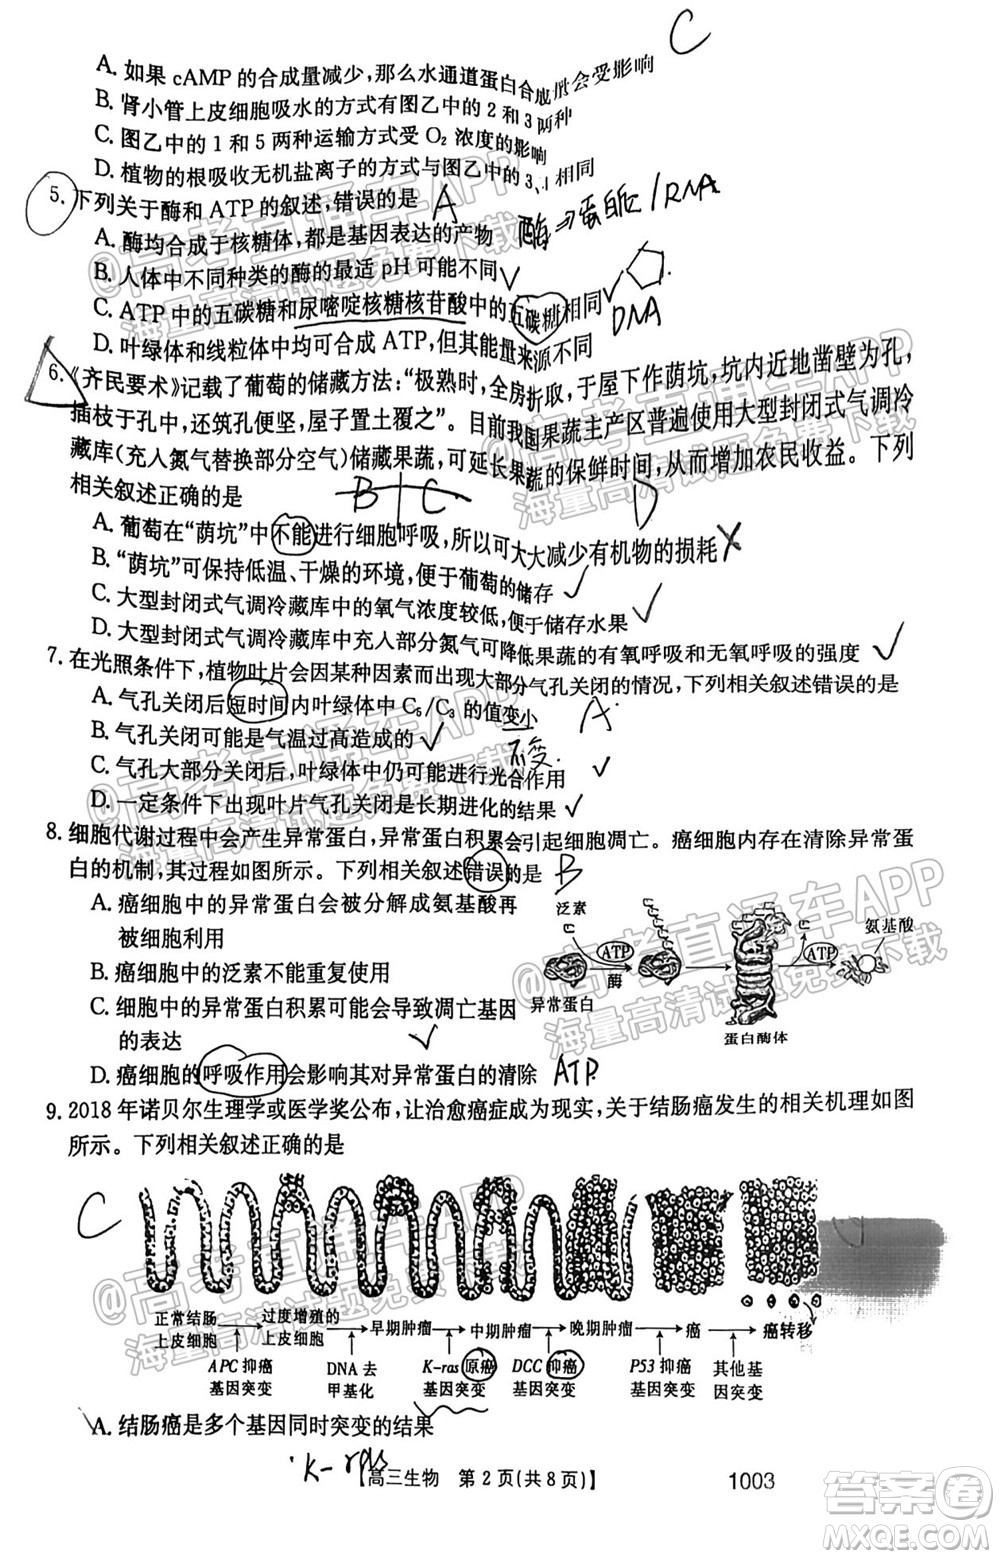 C
A. 如果 cAMP 的合成量减少,那么水通道蛋白合成量会受影响
B. 肾小管上皮细胞吸水的方式有图乙中的 2 和 3 两种
C. 图乙中的 1 和 5 两种运输方式受 O₂ 浓度的影响
D. 植物的根吸收无机盐离子的方式与图乙中的 3、1 相同
5. 下列关于酶和 ATP 的叙述,错误的是 A
A. 酶均合成于核糖体,都是基因表达的产物 酶⇒蛋白质/RNA
B. 人体中不同种类的酶的最适 pH 可能不同
C. ATP 中的五碳糖和尿嘧啶核糖核苷酸中的五碳糖相同 DNA
D. 叶绿体和线粒体中均可合成 ATP,但能量来源不同
6. 《齐民要术》记载了葡萄的储藏方法:“极熟时,全房折取,于屋下作荫坑,坑内近地凿壁为孔,
插枝于孔中,还筑孔便坚,屋子置土覆之”。目前我国果蔬主产区普遍使用大型封闭式气调冷
藏库(充入氮气替换部分空气)储藏果蔬,可延长果蔬的保鲜时间,从而增加农民收益。下列
相关叙述正确的是 B C D
A. 葡萄在“荫坑”中不能进行细胞呼吸,所以可大大减少有机物的损耗
B. “荫坑”可保持低温、干燥的环境,便于葡萄的储存
C. 大型封闭式气调冷藏库中的氧气浓度较低,便于储存水果
D. 大型封闭式气调冷藏库中充入部分氮气可降低果蔬的有氧呼吸和无氧呼吸的强度
7. 在光照条件下,植物叶片会因某种因素而出现大部分气孔关闭的情况,下列相关叙述错误的是
A. 气孔关闭后短时间内叶绿体中 C₅/C₃ 的值变小 A
B. 气孔关闭可能是气温过高造成的 不变
C. 气孔大部分关闭后,叶绿体中仍可能进行光合作用
D. 一定条件下出现叶片气孔关闭是长期进化的结果
8. 细胞代谢过程中会产生异常蛋白,异常蛋白积累会引起细胞凋亡。癌细胞内存在清除异常蛋
白的机制,其过程如图所示。下列相关叙述错误的是 B
A. 癌细胞中的异常蛋白会被分解成氨基酸再
被细胞利用
B. 癌细胞中的泛素不能重复使用
C. 细胞中的异常蛋白积累可能会导致凋亡基因
的表达
D. 癌细胞的呼吸作用会影响其对异常蛋白的清除 ATP
泛素
ATP
酶
异常蛋白
ATP
氨基酸
蛋白酶体
9. 2018 年诺贝尔生理学或医学奖公布,让治愈癌症成为现实,关于结肠癌发生的相关机理如图
所示。下列相关叙述正确的是
C
正常结肠
上皮细胞
过度增殖的
上皮细胞
早期肿瘤
中期肿瘤
晚期肿瘤
癌
癌转移
APC 抑癌
基因突变
DNA 去
甲基化
K-ras 原癌
基因突变
DCC 抑癌
基因突变
P53 抑癌
基因突变
其他基
因突变
A. 结肠癌是多个基因同时突变的结果
K-ras
【高三生物 第 2 页(共 8 页)】
1003
@高考直通车APP
海量高清试题免费下载
@高考直通车APP
海量高清试题免费下载
@高考直通车APP
海量高清试题免费下载
@高考直通车APP
海量高清试题免费下载
@高考直通车APP
海量高清试题免费下载
答案卷
MXQE.COM